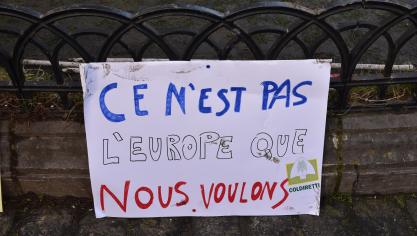 CE N'EST PAS
L'EUROPE QUE
NOUS VOULONS
COLDIRETTI